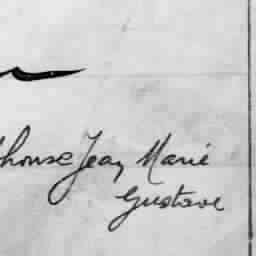 phonse Jean Marie
Gustave